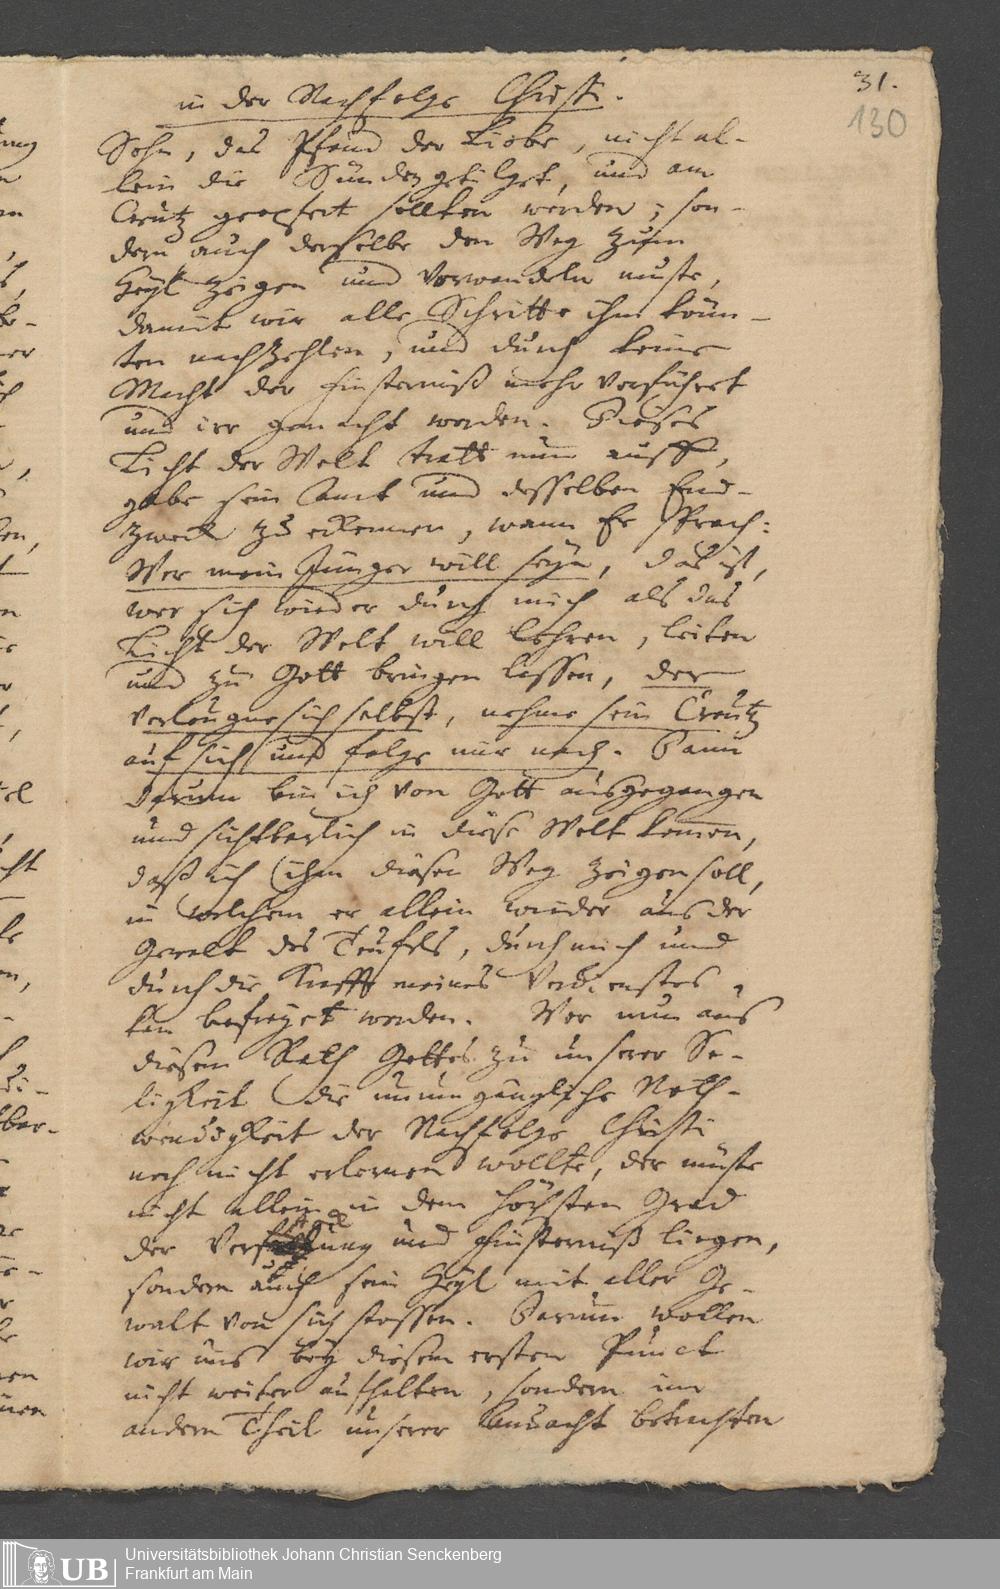 in der Nachfolge Christi.
31.
130
Sohn, das Pfand der Liebe, nicht al-
lein die Sünden getilget, und am
Creutz geopfert sollten werden; son-
dern auch derselbe den Weg zum
Heyl zeigen und vorwandeln muste,
damit wir alle Schritte ihm kön-
ten nachzehlen, und durch keine
Macht der Finsterniß mehr verführet
und irr gemacht werden. Dieses
Licht der Welt tratt nun auff,
gabe sein Amt und desselben End-
zweck zu erkennen, wann Er sprach:
Wer mein Jünger will seyn, das ist,
wer sich wieder durch mich als das
Licht der Welt will lehren, leiten
und zu Gott bringen lassen, der
verleugne sich selbst, nehme sein Creutz
auf sich und folge mir nach. Dann
darum bin ich von Gott ausgegangen
und sichtbarlich in diese Welt kommen,
daß ich ihm diesen Weg zeigen soll,
in welchem er allein wieder aus der
Gewalt des Teufels, durch mich und
durch die Krafft meines Verdienstes,
kan befreyet werden. Wer nun aus
diesem Rath Gottes zu unserer Se-
ligkeit die unumgängliche Noth-
wendigkeit der Nachfolge Christi
noch nicht erlernen wollte, der müste
nicht allein in dem höchsten Grad
der und Finsterniß liegen,
sondern auch sein Heyl mit aller Ge-
walt von sich stossen. Darum wollen
wir uns bey diesem ersten Punct
nicht weiter aufhalten, sondern im
andern Theil unserer Andacht betrachten
UB
Universitätsbibliothek Johann Christian Senckenberg
Frankfurt am Main